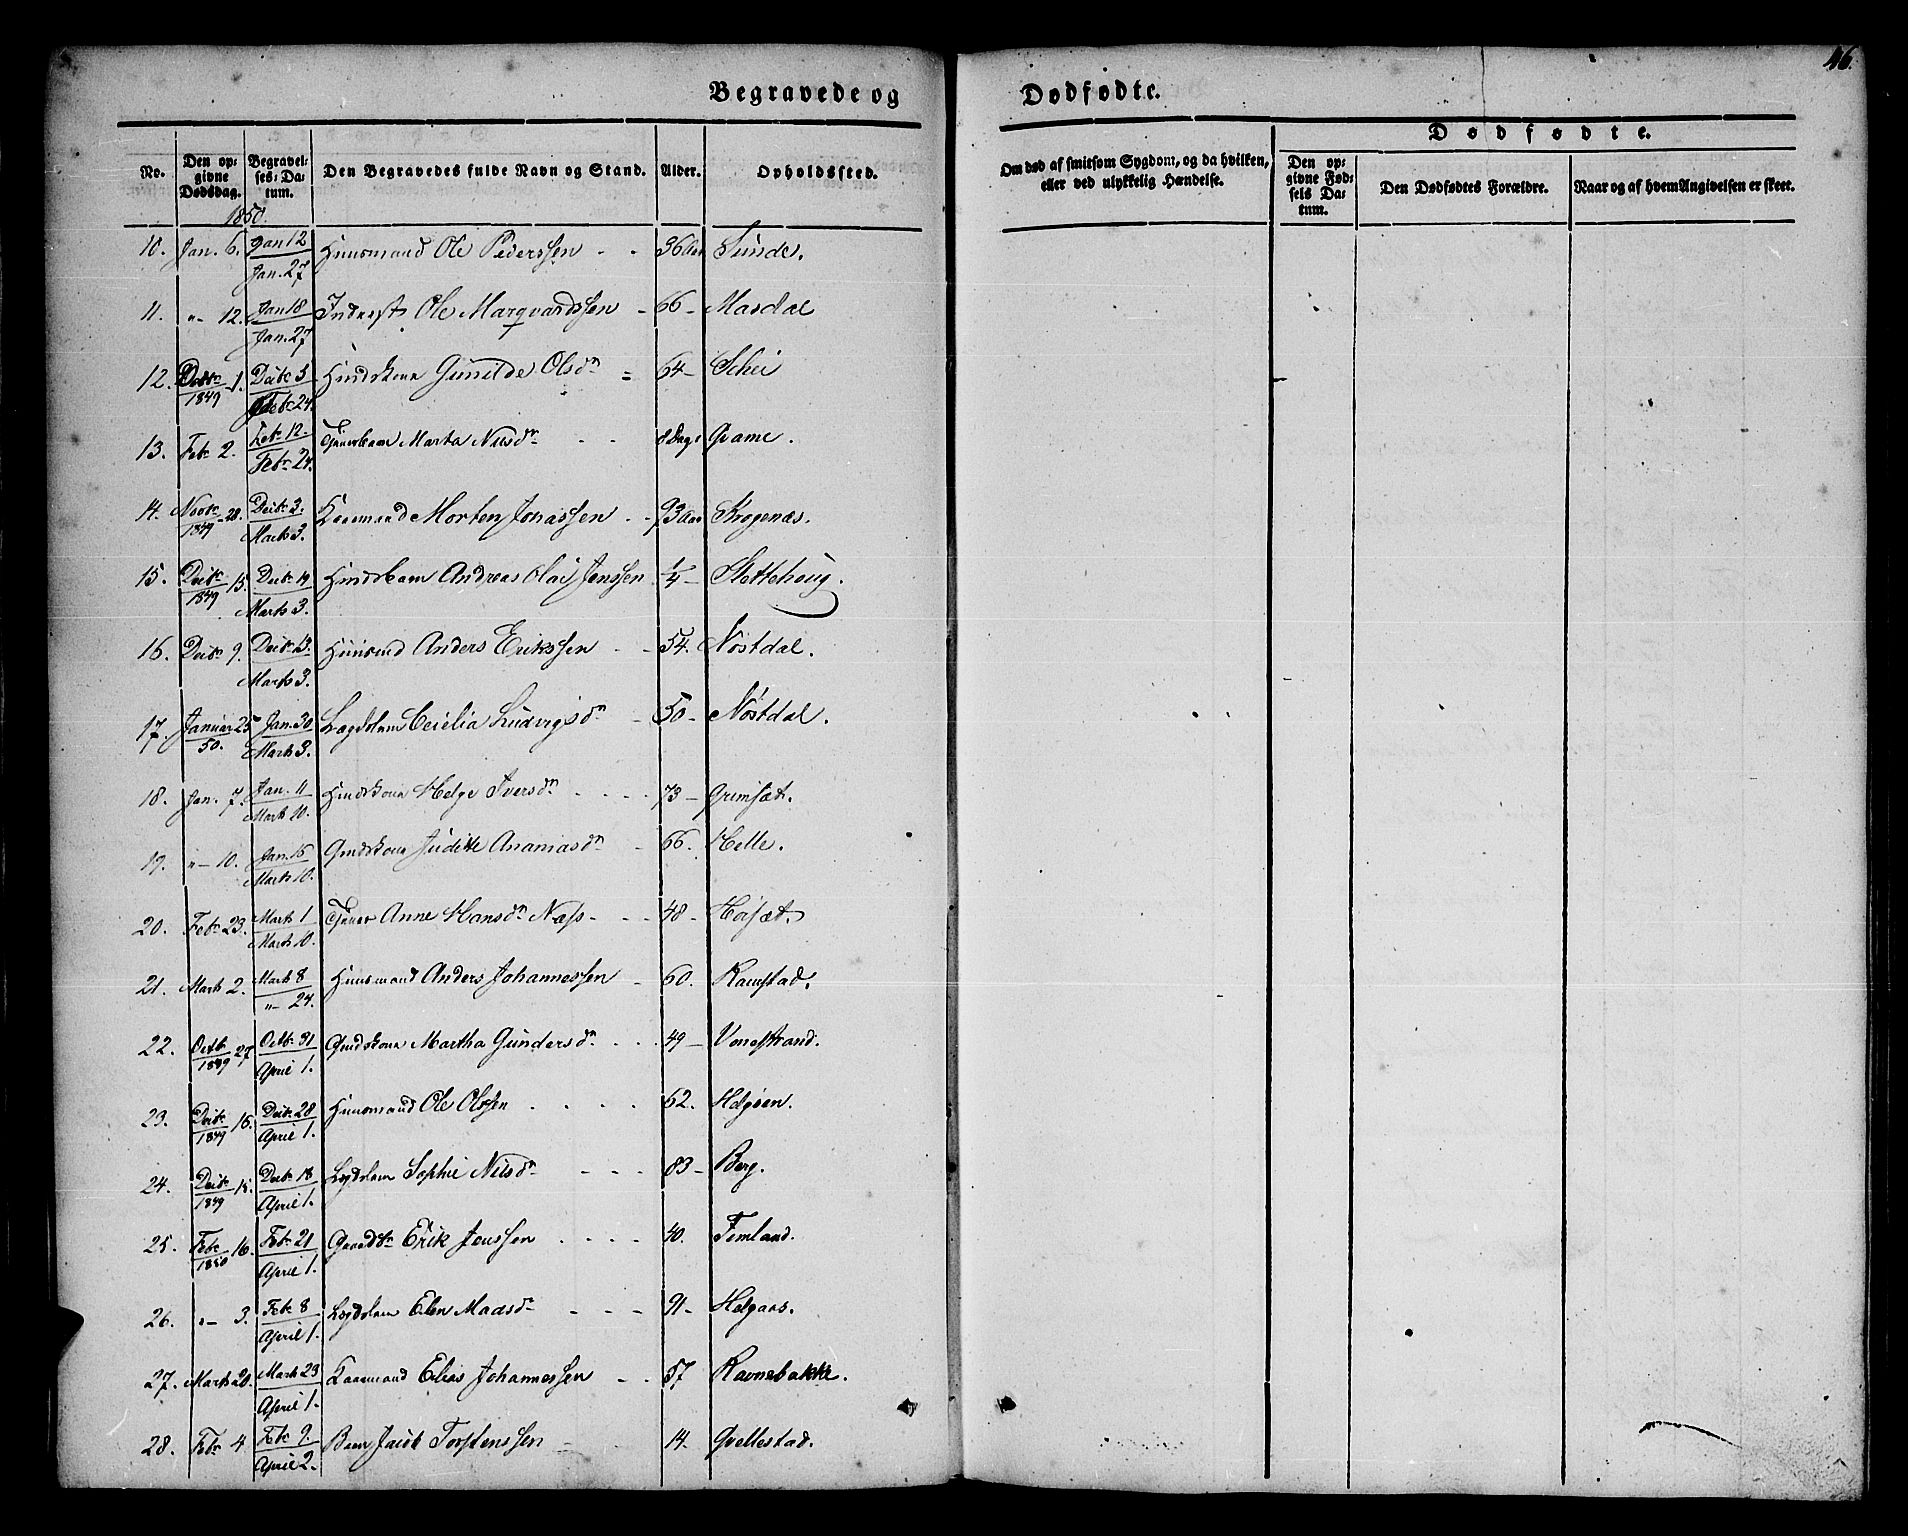 46.
Begravede og Dødfødte.
No. Den opgivne Dødsdag. Begravelses-Datum. Den Begravedes fulde Navn og Stand. Alder. Opholdssted. Om død af smitsom Sygdom, og da hvilken, eller ved ulykkelig Hændelse. Dødfødte. Den opgivne Fødsels Datum. Den Dødfødtes Forældre. Naar og af hvem Angivelsen er skeet.
1850.
10. Jan. 6. Jan 12 / Jan. 27 Huusmand Ole Pederssen 36 Aar Sunde.
11. "- 12. Jan 18 / Jan. 27 Inderst Ole Marqvardssen 66 Masdal
12. 1849 1. Decbr 5 / Febr 24. Gunilde Olsdn 64 Schei
13. Febr 2. Febr 12. / Febr 24. Marta Nilsdn 8 Dage Qvame.
14. Novbr / 1849 28. Decbr 3. / Marts 3. Kaarmand Morten Jonassen 93 Aar Krogenæs.
15. Decbr / 1849 15. Decbr 19 / Marts 3. Andreas Olai Jenssen 1/4 Slettehoug.
16. Decbr 9. Decbr 13. / Marts 3. Huusmd Anders Erikssen 54. Nøstdal.
17. Januar 25 / 50. Jan. 30 / Marts 3. Lægdslem Cecilia Ludvigsdn 50 Nøstdal.
18. Jan. 7. Jan. 11 / Marts 10. Helge Iversdn 73 Grimsæt.
19. "- 10. Jan. 15 / Marts 10. Gmdskone Judithe Ananiasdn 66. Helle.
20. Febr 23. Marts 1 / Marts 10. Tjener Anne Hansdn Næss 48 Høisæt.
21. Marts 2. Marts 8 / "- 24. Huusmand Anders Johannessen 60. Ramstad.
22. Octb. / 1849 27 Octb. 31 / April 1. Gmdskone Martha Gundersdn 49 Vonestrand.
23. Decbr / 1849 16. Decbr 28 / April 1. Huusmand Ole Olssen 62. Helgøen.
24. Decbr / 1849 15. Decbr 18 / April 1. Lægdslem Sophie Nilsdn 83 Berg.
25. Febr / 1850 16. Febr 21 / April 1. Erik Jonssen 40. Femland.
26. "- 3. Febr 8 / April 1. Lægdslem Elen Madsdn 91 Helgaas.
27. Marts 20. Marts 23 / April 1. Kaarmand Elias Johannessen 57 Ravnebakke.
28. Febr 4 Febr 9. / April 2. Barn Jacob Torstenssen 14. Qvellestad.